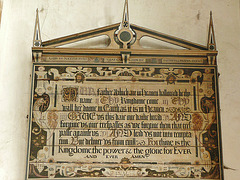 Father which art in heaven hallowed be thy
name Thy Kingdome come Thy
will bee done in Earth as it is in Heaven
GIVE us this daie our dailie bread And
forgive us our trespasses as we forgive them that tres
passe against us And lead us not into tempta
tion But deliver us from evill For thine is the
Kingdome the power & the glorie for EVER
AND EVER AMEN